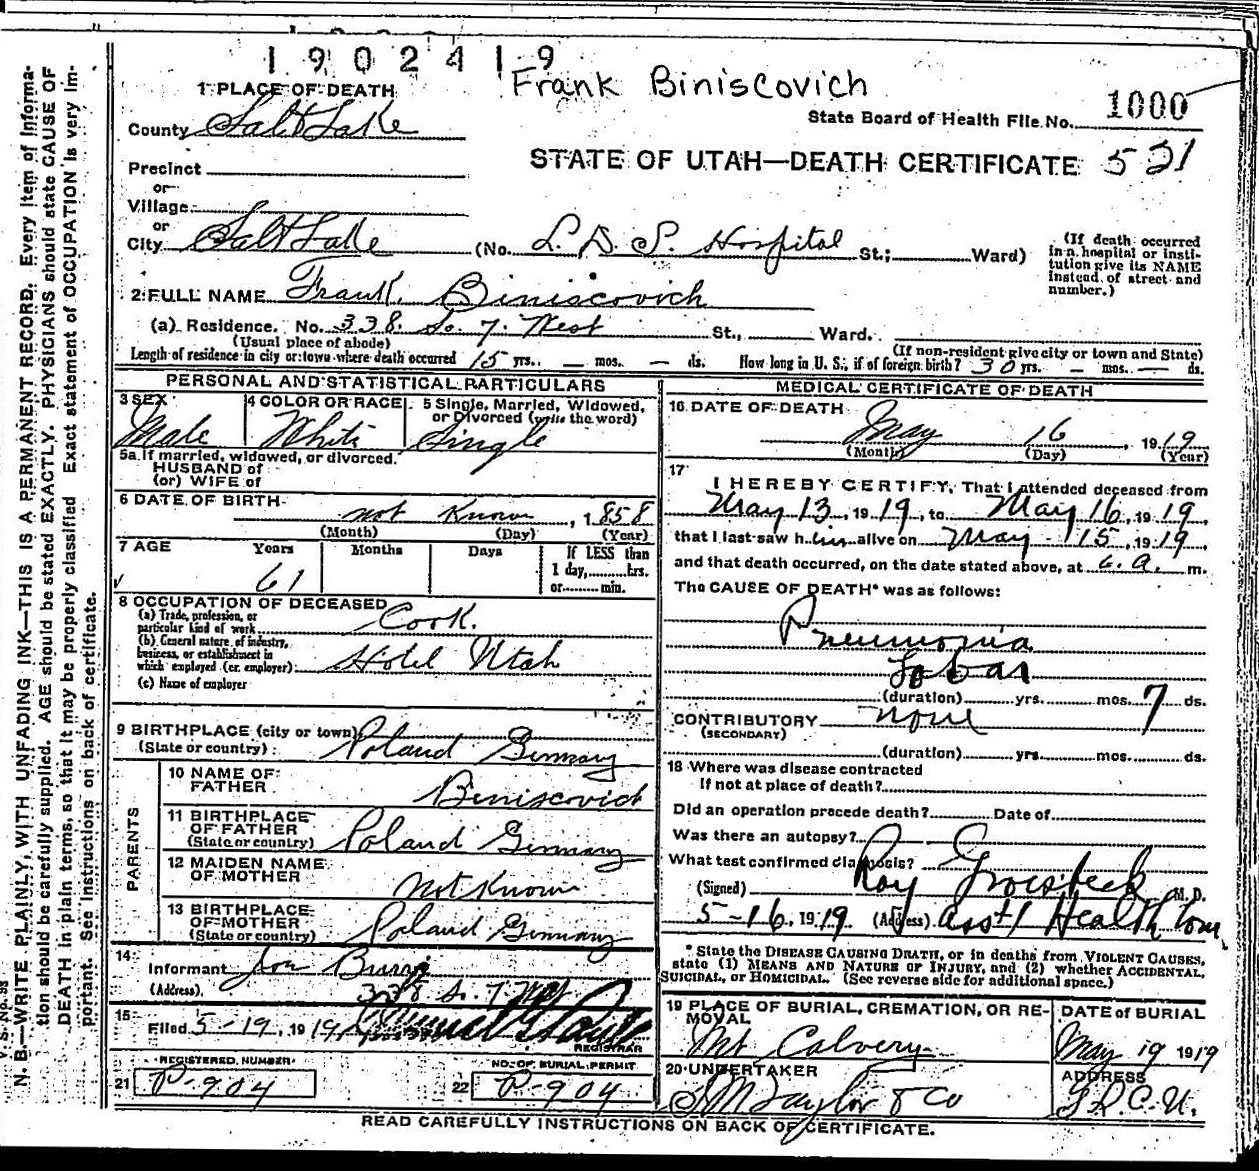 1902419
Frank Biniscovich
1 PLACE OF DEATH
State Board of Health File No. 1000
County Salt Lake
STATE OF UTAH—DEATH CERTIFICATE 521
Precinct
or
Village
or
City Salt Lake (No. L. D. S. Hospital St.; Ward)
(If death occurred in a hospital or institution give its NAME instead of street and number.)
2 FULL NAME Frank Biniscovich
(a) Residence. No. 338. So. 7. West St., Ward.
(Usual place of abode) (If non-resident give city or town and State)
Length of residence in city or town where death occurred 15 yrs. — mos. — ds. How long in U. S., if of foreign birth? 30 yrs. — mos. — ds.
PERSONAL AND STATISTICAL PARTICULARS
3 SEX 4 COLOR OR RACE 5 Single, Married, Widowed,
or Divorced (write the word)
Male White Single
5a If married, widowed, or divorced.
HUSBAND of
(or) WIFE of
6 DATE OF BIRTH
not Known, 1858
(Month) (Day) (Year)
7 AGE Years Months Days If LESS than
1 day, hrs.
61 or min.
8 OCCUPATION OF DECEASED
(a) Trade, profession, or
particular kind of work Cook.
(b) General nature of industry,
business, or establishment in
which employed (or employer) Hotel Utah
(c) Name of employer
9 BIRTHPLACE (city or town)
(State or country) Poland Germany
PARENTS
10 NAME OF
FATHER Biniscovich
11 BIRTHPLACE
OF FATHER
(State or country) Poland Germany
12 MAIDEN NAME
OF MOTHER Not Known
13 BIRTHPLACE
OF MOTHER
(State or country) Poland Germany
14
Informant
(Address) 338 S. 7 West
15
Filed 5-19, 1919
REGISTRAR
REGISTERED NUMBER NO. OF BURIAL PERMIT
21 P-904 22 P-904
MEDICAL CERTIFICATE OF DEATH
16 DATE OF DEATH
May 16, 1919
(Month) (Day) (Year)
17
I HEREBY CERTIFY, That I attended deceased from
May 13, 1919, to May 16, 1919,
that I last saw him alive on May 15, 1919,
and that death occurred, on the date stated above, at 6. a. m.
The CAUSE OF DEATH* was as follows:
Pneumonia
Lobar
(duration) yrs. mos. 7 ds.
CONTRIBUTORY none
(SECONDARY)
(duration) yrs. mos. ds.
18 Where was disease contracted
If not at place of death?
Did an operation precede death? Date of
Was there an autopsy?
What test confirmed diagnosis?
(Signed) Roy Groesbeck M.D.
5-16, 1919 (Address) Asst Health Com.
* State the DISEASE CAUSING DEATH, or in deaths from VIOLENT CAUSES,
state (1) MEANS AND NATURE OF INJURY, and (2) whether ACCIDENTAL,
SUICIDAL, or HOMICIDAL. (See reverse side for additional space.)
19 PLACE OF BURIAL, CREMATION, OR RE-
MOVAL
Mt Calvery
DATE of BURIAL
May 19 1919
20 UNDERTAKER
S M Taylor & Co
ADDRESS
S. L. C. U.
READ CAREFULLY INSTRUCTIONS ON BACK OF CERTIFICATE.
V. S. No. 98
N. B.—WRITE PLAINLY, WITH UNFADING INK—THIS IS A PERMANENT RECORD. Every item of informa-
tion should be carefully supplied. AGE should be stated EXACTLY. PHYSICIANS should state CAUSE OF
DEATH in plain terms, so that it may be properly classified. Exact statement of OCCUPATION is very im-
portant. See instructions on back of certificate.